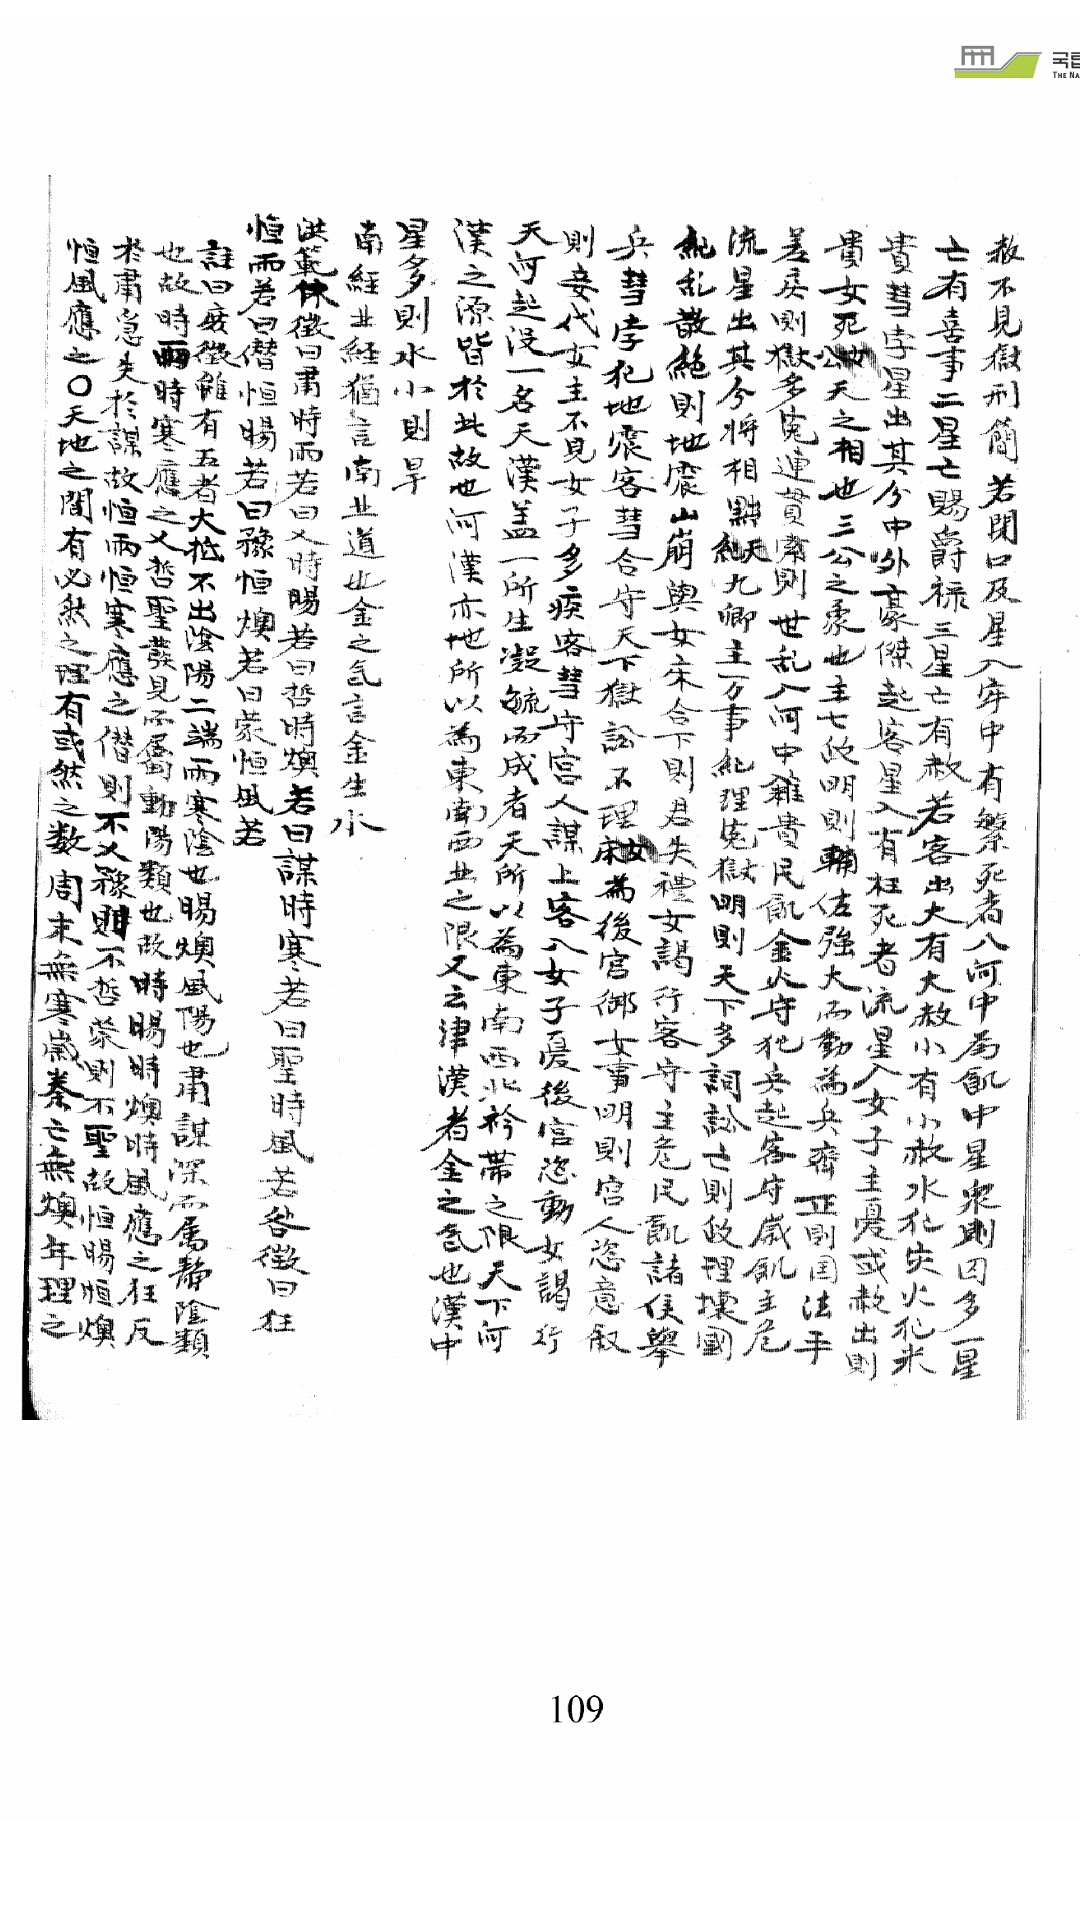 국립
THE NA
赦不見獄刑簡若閉口及星入牢中有繫死者入河中為飢中星衆則囚多一星
亡有喜事二星亡賜爵祿三星亡有赦若客出大有大赦小有小赦水犯灾火犯米
貴彗孛星出其分中外豪傑起客星入有枉死者流星入女子主憂或赦出則
貴女死 公天之相也三公之象也主七政明則輔佐強大而動為兵齊正則国法平
差戾則獄多寃連貫索則世乱入河中糴貴民飢金火守犯兵起客守歲飢主危
流星出其分將相黜 天紀九卿主万事紀理寃獄明則天下多詞訟亡則政理壞國
紀乱散絶則地震山崩與女床合下則君失禮女謁行客守主危民亂諸侯擧
兵彗孛犯地震客彗合守天下獄訟不理 女床為後宮御女事明則宮人恣意
則妾代女主不見女子多疾客彗守宮人謀上客入女子憂後宮恣動女謁行
天河起沒一名天漢盖一所生凝毓而成者天所以為東南西北衿帶之限天下河
漢之源皆於此故也河漢亦地所以為東南西北之限又云津漢者金之氣也漢中
星多則水小則旱
南經北経猶言南北道也金之気言金生水
洪範休徵曰肅時雨若曰乂時暘若曰哲時燠若曰謀時寒若曰聖時風若咎徵曰狂
恒雨若曰僭恒暘若曰豫恒燠若曰蒙恒風若
註曰庶徵雖有五者大抵不出陰陽二端雨寒陰也暘燠風陽也肅謀深而属靜陰類
也故時雨時寒應之乂哲聖發見而屬動陽類也故時暘時燠時風應之狂反
於肅急失於謀故恒雨恒寒應之僭則不乂豫則不哲蒙則不聖故恒暘恒燠
恒風應之〇天地之間有必然之理有或然之数周末無寒歲秦亡無燠年理之
109